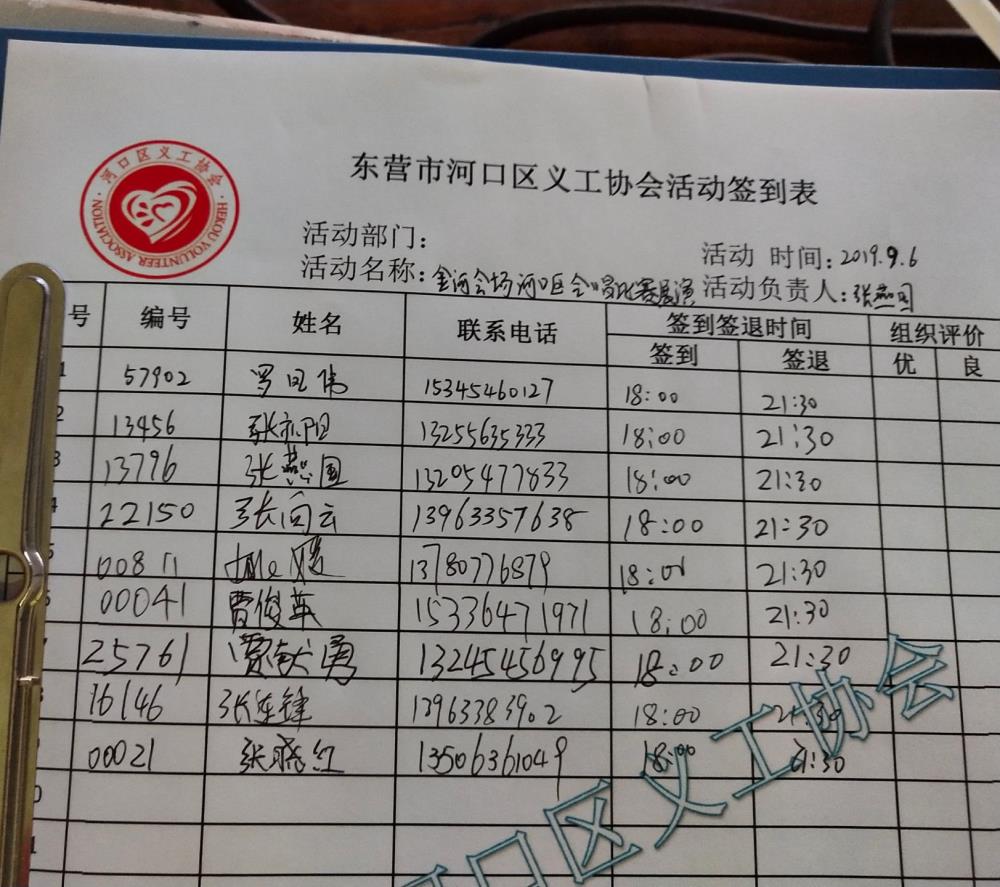 东营市河口区义工协会活动签到表
河口区义工协会
HEKOU VOLUNTEER ASSOCIATION
活动部门：
活动 时间：2019.9.6
活动名称：金河会场河口区合唱比赛展演 活动负责人：张燕国
号 编号 姓名 联系电话 签到签退时间 组织评价
签到 签退 优 良
1 57902 15345460127 18:00 21:30
2 13456 张 13255635333 18:00 21:30
3 13796 张燕国 13205477833 18:00 21:30
4 22150 张向云 13963357638 18:00 21:30
5 00811 13780776879 18:00 21:30
6 00041 曹俊英 15336471971 18:00 21:30
7 25761 13245456995 18:00 21:30
8 16146 张连锋 13963383902 18:00 21:30
9 00021 张晓红 13506361049 18:00 21:30
0
1
河口区义工协会